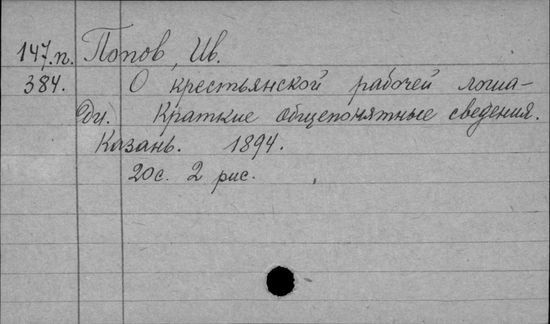 147.п. Попов, Ив.
384. О крестьянской рабочей лоша-
ди. Краткие общепонятные сведения.
Казань. 1894.
20с. 2 рис.